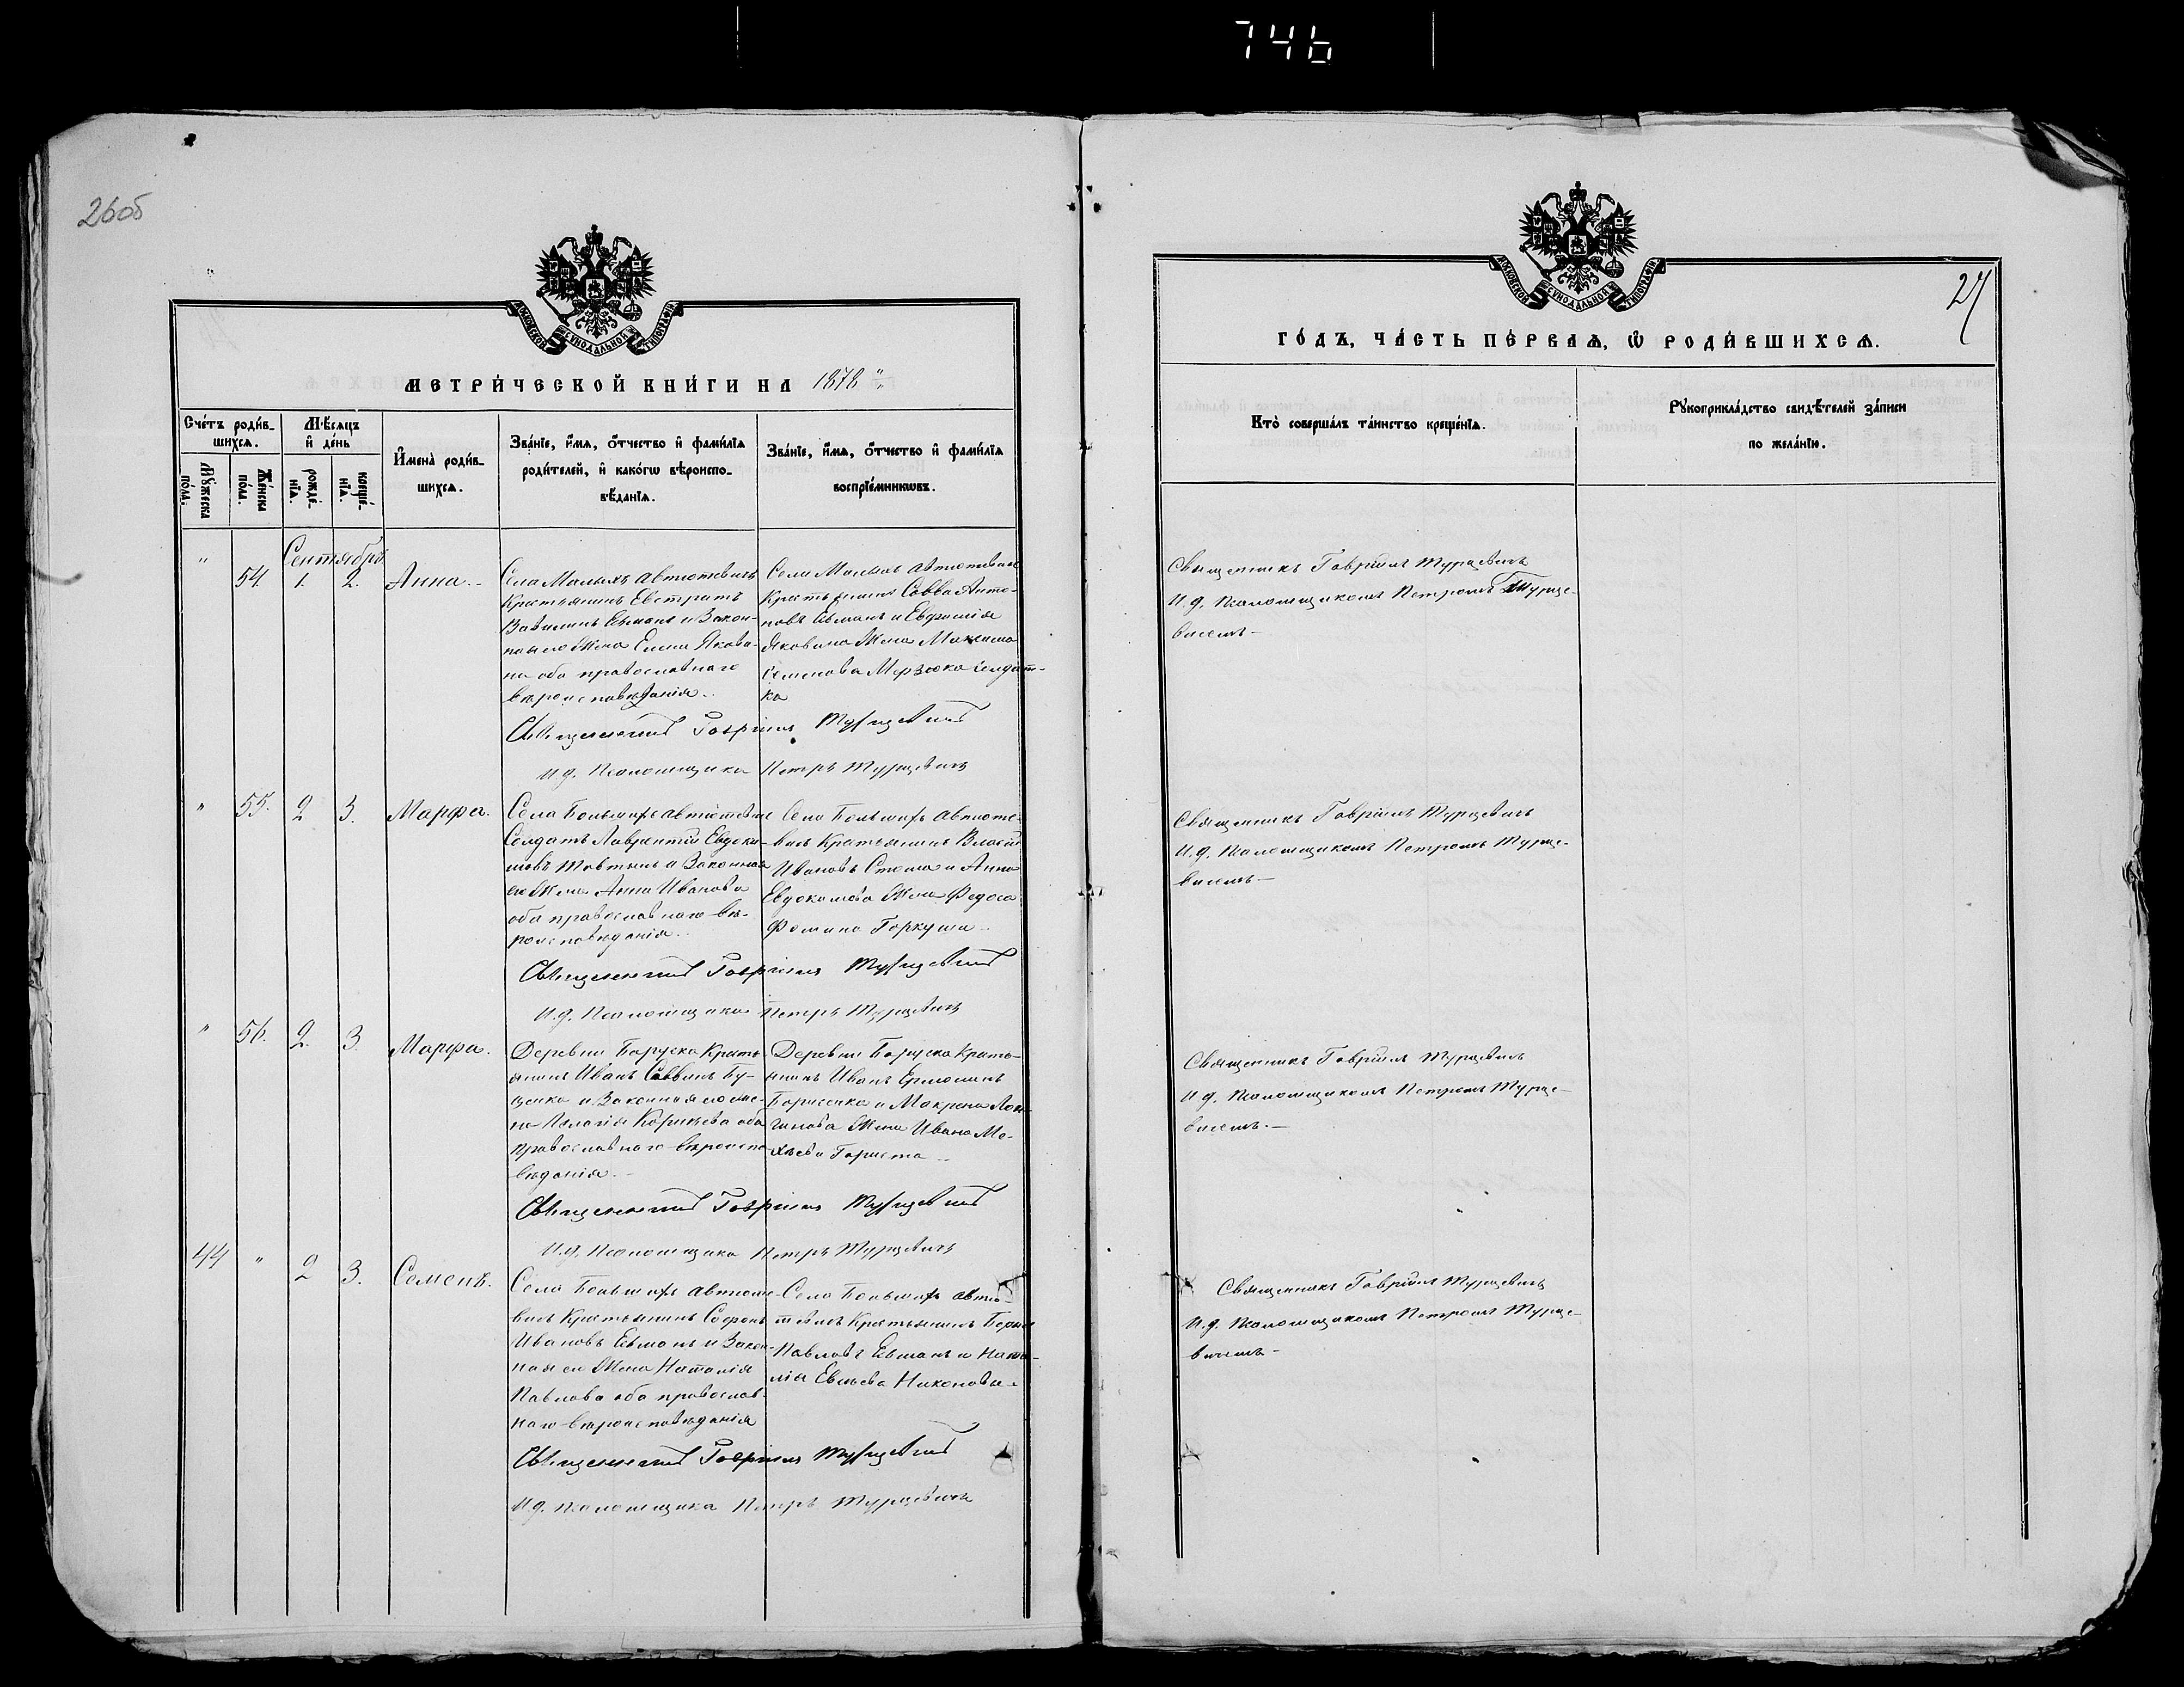 746
26об
МОСКОВСКОЙ СУНОДАЛЬНОЙ ТИПОГРАФІИ
МЕТРИ́ЧЕСКОЙ КНИ́ГИ НА 1878 "
Сче́тъ роди́в-
шихсѧ.
Мꙋ́жеска
по́ла.
Же́нска
по́ла.
Мѣ́сѧцъ
и҆ де́нь
рожде́-
нїѧ.
креще́-
нїѧ.
И҆мена̀ роди́в-
шихсѧ.
Зва́нїе, и҆́мѧ, ѻ҆́тчество и҆ фами́лїѧ
роди́телей, и҆ како́гѡ вѣроиспо-
вѣ́данїѧ.
Зва́нїе, и҆́мѧ, ѻ҆́тчество и҆ фами́лїѧ
воспрїе́мникѡвъ.
Сентябрь
" 54. 1. 2. Анна.
Села Малыхъ Автютевичъ
Крестьянинъ Евстратъ
Вавилинъ Евманъ и Закон-
ная его Жена Елена Якови-
на оба православнаго
вѣроисповѣданія.
Села Малыхъ Автютевичъ
Крестьянинъ Савва Анто-
новъ Евманъ и Евфросинія
Яковина Жена Максима
Семенова Мерзюка солдат-
ка
Священникъ Гавріилъ Турцевичъ
И.д. Псаломщика Петръ Турцевичъ
" 55. 2 3. Марфа.
Села Большихъ Автютевичъ
Солдатъ Лаврентій Евдоки-
мовъ Товтынъ и Законная
его Жена Анна Иванова
оба православнаго вѣ-
роисповѣданія.
Села Большихъ Автюте-
вичъ Крестьянинъ Власій
Ивановъ Стома и Анна
Евдокимова Жена Федоса
Фомина Горкуши
Священникъ Гавріилъ Турцевичъ
И.д. Псаломщика Петръ Турцевичъ
" 56. 2. 3. Марфа.
Деревни Боруска Кресть-
янинъ Иванъ Саввинъ Бу-
ценко и Законная его же-
на Пелагія Корнѣева оба
православнаго вѣроиспо-
вѣданія.
Деревни Боруска Кресть-
янинъ Иванъ Ермолинъ
Борисенко и Макрена Лон-
гинова Жена Ивана Мо-
хѣева Гориста
Священникъ Гавріилъ Турцевичъ
И.д. Псаломщика Петръ Турцевичъ
44 " 2 3. Семенъ.
Села Большихъ Автюте-
вичъ Крестьянинъ Софронъ
Ивановъ Евманъ и Закон-
ная его Жена Наталія
Павлова оба православ-
наго вѣроисповѣданія
Села Большихъ Автю-
тевичъ Крестьянинъ
Павловъ Евманъ и Ната-
лія Евсѣева Никонова
Священникъ Гавріилъ Турцевичъ
И.д. Псаломщика Петръ Турцевичъ
МОСКОВСКОЙ СУНОДАЛЬНОЙ ТИПОГРАФІИ
27
ГО́ДЪ, ЧА́СТЬ ПЕ́РВАѦ, Ѡ҆ РОДИ́ВШИХСѦ.
Кто̀ соверша́лъ та́инство креще́нїѧ.
Рꙋкоприкла́дство свидѣ́телей за́писи
по жела́нїю.
Священникъ Гавріилъ Турцевичъ
И.д. Псаломщикомъ Петромъ Турце-
вичемъ
Священникъ Гавріилъ Турцевичъ
И.д. Псаломщикомъ Петромъ Турце-
вичемъ
Священникъ Гавріилъ Турцевичъ
И.д. Псаломщикомъ Петромъ Турце-
вичемъ.
Священникъ Гавріилъ Турцевичъ
И.д. Псаломщикомъ Петромъ Турце-
вичемъ